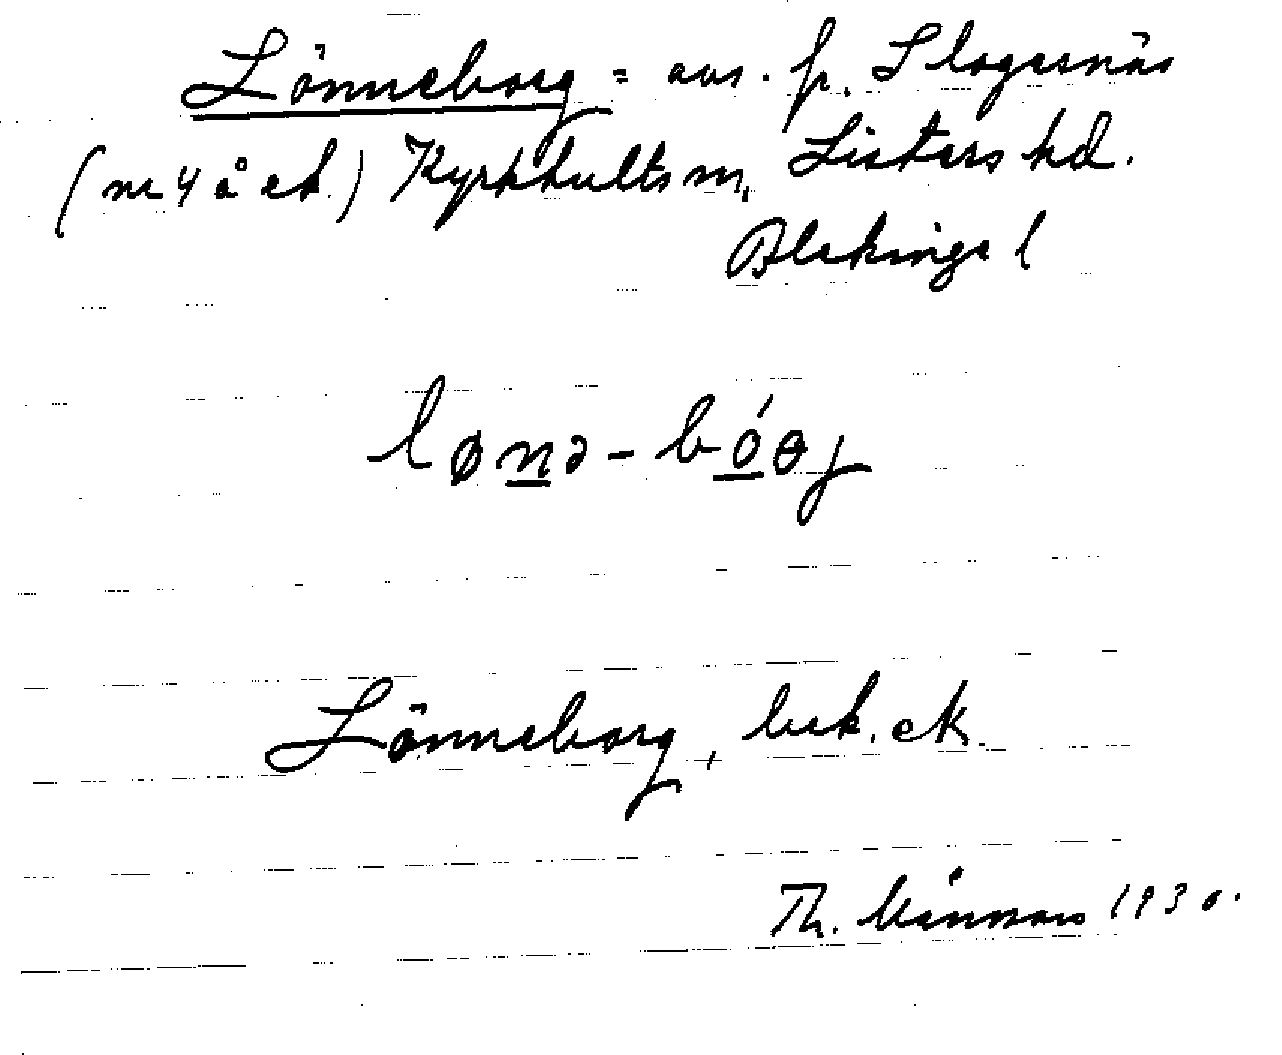 Lönneborg = avs. fr. Slagesnäs
(nr 4 å ek.) Kyrkhults sn, Listers hd.
Blekinge l
løna-bóɵʝ
Lönneborg, bek. ek.
Th. 1930.